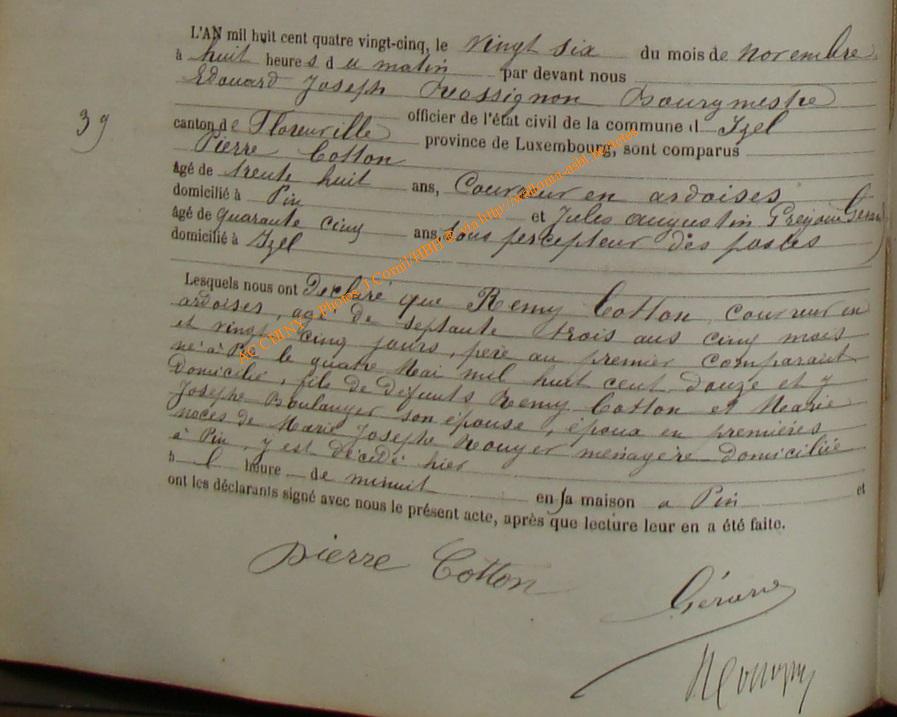 L'AN mil huit cent quatre vingt-cinq, le vingt six du mois de novembre
à huit heures du matin par devant nous
Edouard Joseph Rossignon Bourgmestre
39
officier de l'état civil de la commune d Izel
canton de Florenville province de Luxembourg, sont comparus
Pierre Cotton
âgé de trente huit ans, Couvreur en ardoises
domicilié à Pin et Jules Augustin Grégoire Gérard
âgé de quarante cinq ans, sous percepteur des postes
domicilié à Izel
Lesquels nous ont Déclaré que Remy Cotton couvreur en
ardoises, agé de septante trois ans cinq mois
et vingt cinq jours, père au premier comparant
né à Pin le quatre Mai mil huit cent douze et y
Domicilié, fils de défunts Remy Cotton et Marie
Josephe Boulanger son épouse, époux en premières
noces de Marie Josephe ménagère domiciliée
à Pin, y est décédé hier
à l heure de minuit en sa maison a Pin et
ont les déclarants signé avec nous le présent acte, après que lecture leur en a été faite.
pierre Cotton
Gérard
AC CHINY - Photos J.Cornil